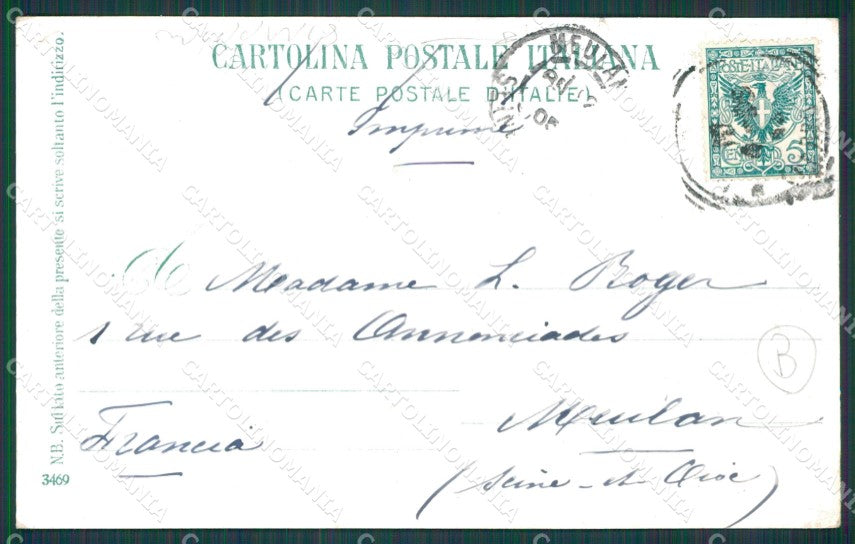 CARTOLINA POSTALE ITALIANA
(CARTE POSTALE D'ITALIE)
Imprimé
MEULAN
POSTE ITALIANE
CENT 5
A Madame L. Roger
1 rue des Annonciades
Meulan
Francia
(Seine-et-Oise)
B
N.B. Sul lato anteriore della presente si scrive soltanto l'indirizzo.
3469
CARTOLINOMANIA